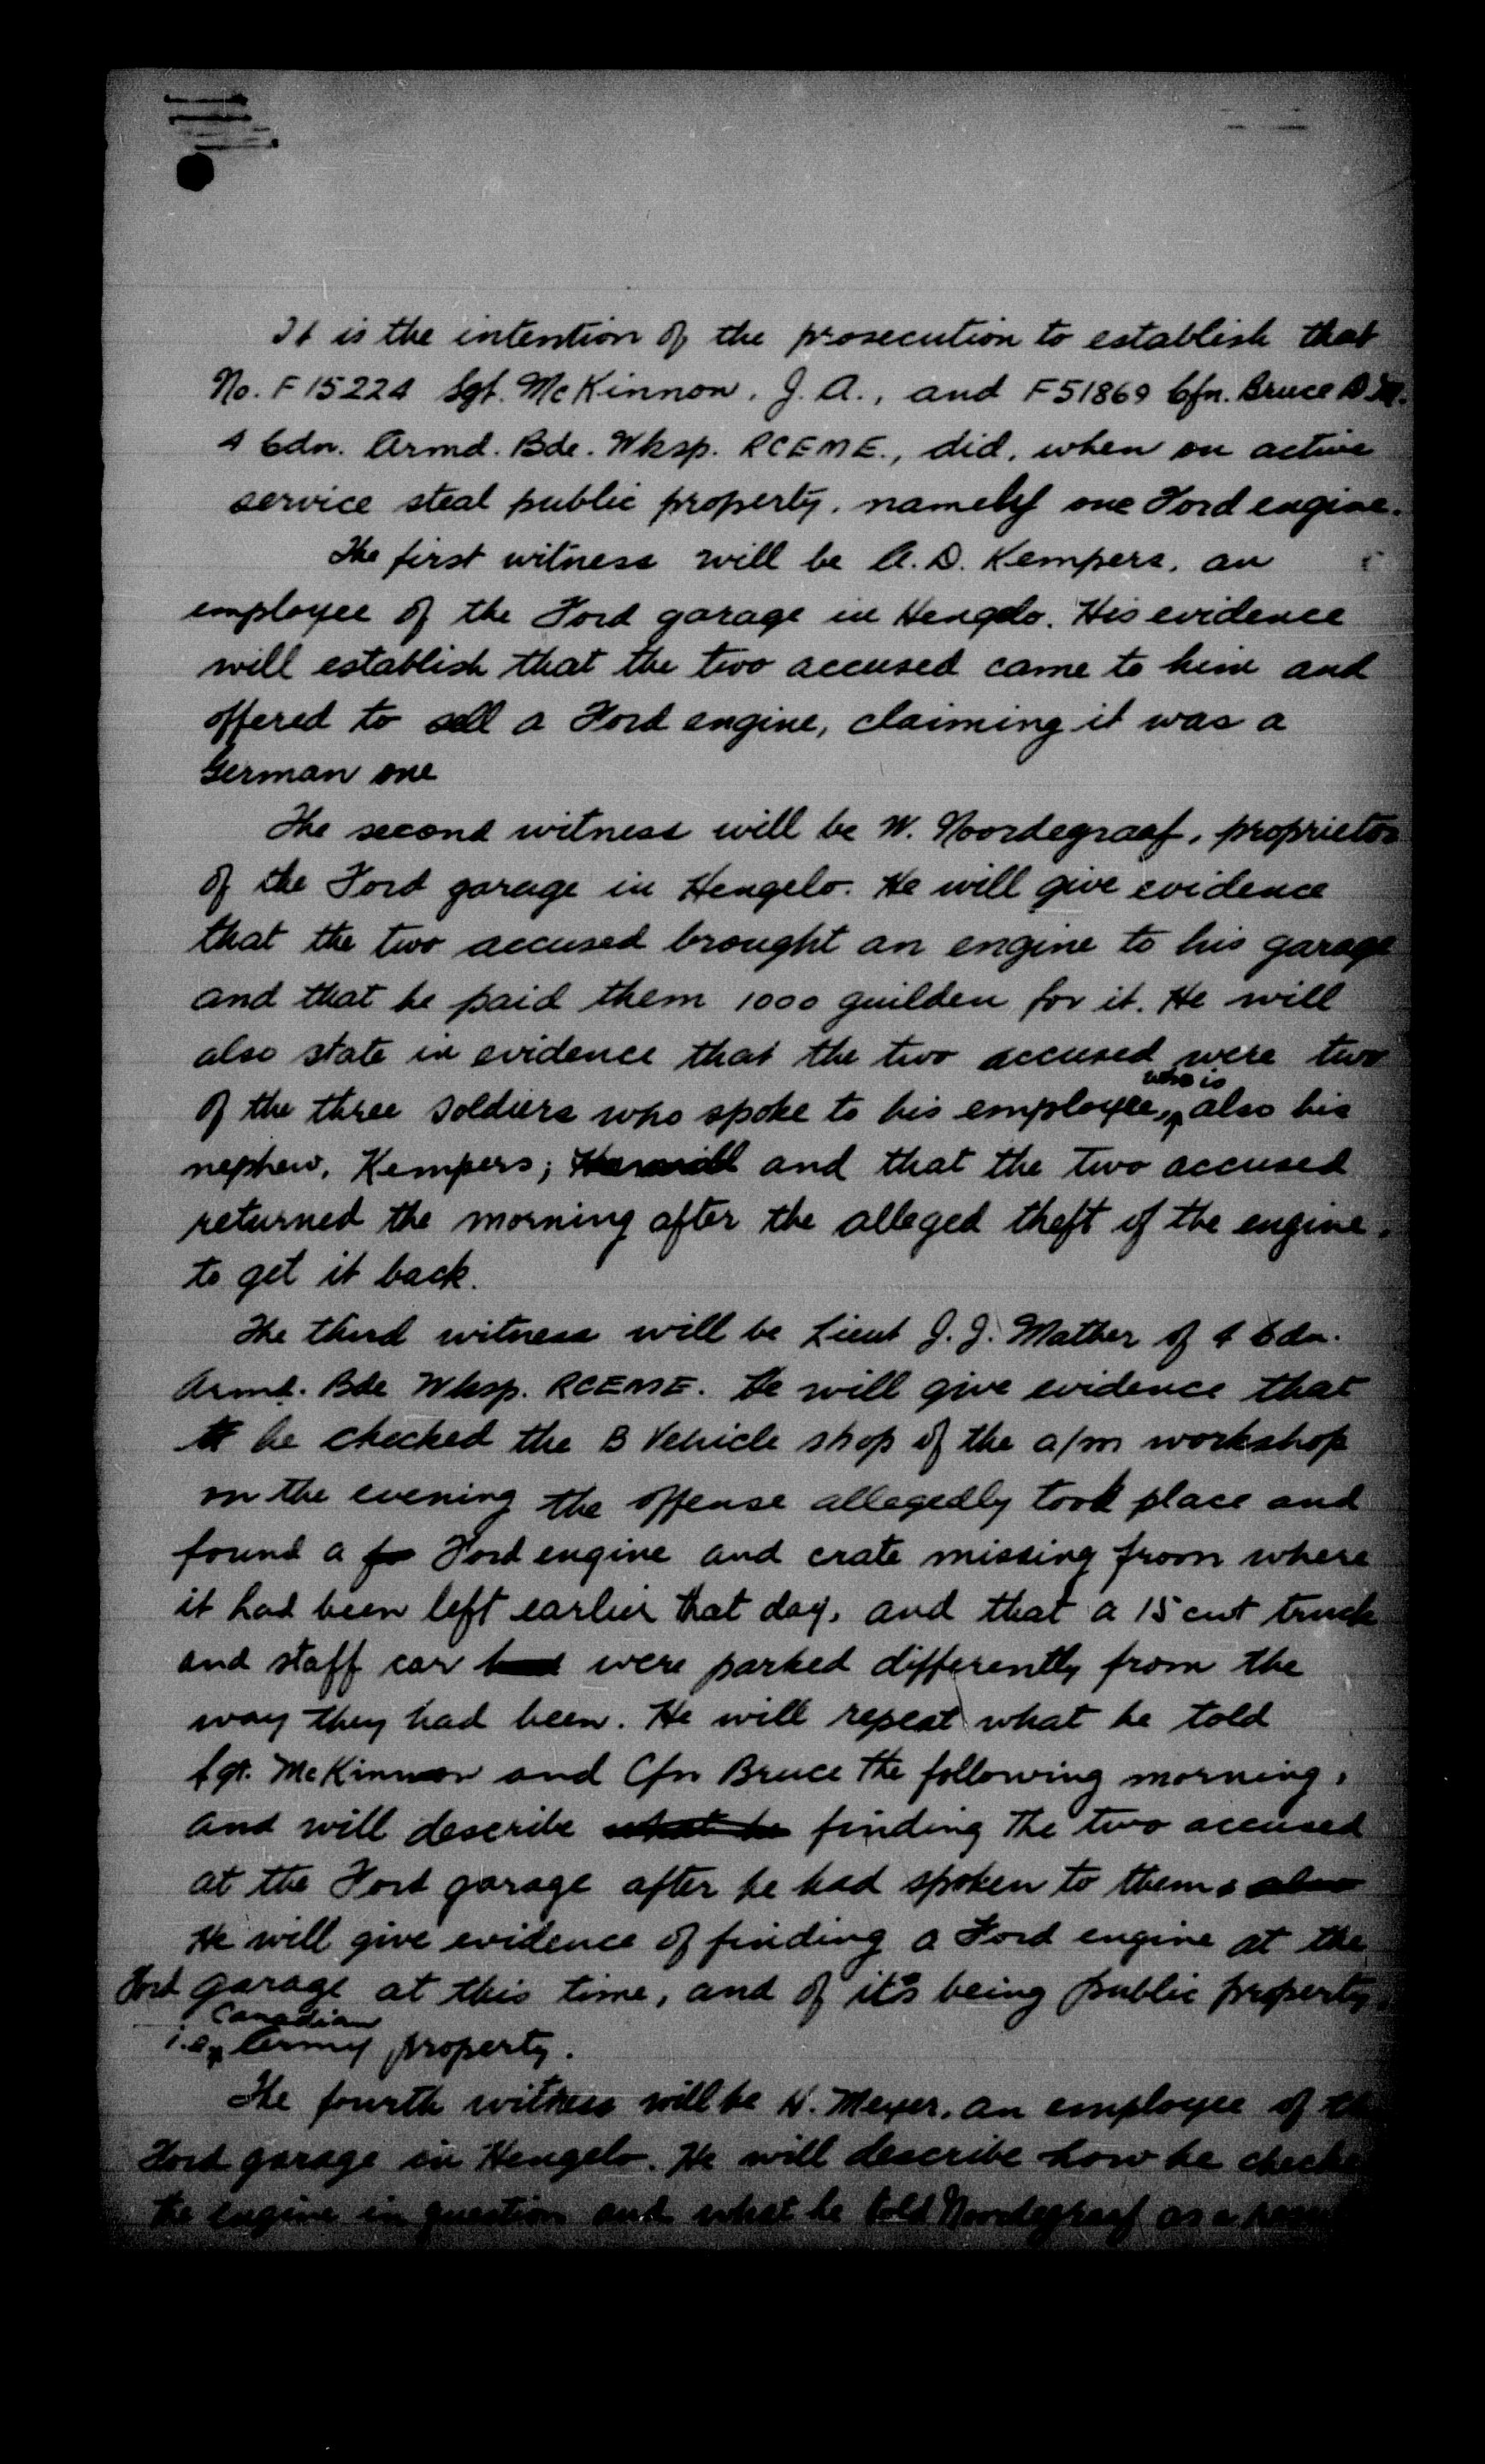 It is the intention of the prosecution to establish that
No. F 15224 Sgt. McKinnon, J. A., and F51869 Cfn. Bruce D.M.
4 Cdn. Armd. Bde. Wksp. RCEME., did, when on active
service steal public property, namely one Ford engine.
The first witness will be A. D. Kempers, an
employee of the Ford garage in Hengelo. His evidence
will establish that the two accused came to him and
offered to sell a Ford engine, claiming it was a
German one
The second witness will be W. Noordegraaf, proprietor
of the Ford garage in Hengelo. He will give evidence
that the two accused brought an engine to his garage
and that he paid them 1000 guilden for it. He will
also state in evidence that the two accused were two
of the three soldiers who spoke to his employee, who is also his
nephew, Kempers; and that the two accused
returned the morning after the alleged theft of the engine,
to get it back.
The third witness will be Lieut J. J. Mather of 4 Cdn.
Armd. Bde Wksp. RCEME. He will give evidence that
he checked the B Vehicle shop of the a/m workshop
on the evening the offense allegedly took place and
found a Ford engine and crate missing from where
it had been left earlier that day, and that a 15 cwt truck
and staff car were parked differently from the
way they had been. He will repeat what he told
Sgt. McKinnon and Cfn Bruce the following morning,
and will describe what he finding the two accused
at the Ford garage after he had spoken to them.
He will give evidence of finding a Ford engine at the
Ford garage at this time, and of it's being public property,
i.e. Canadian Army property.
The fourth witness will be H. Meyer, an employee of the
Ford garage in Hengelo. He will describe how he
the engine in question and what he told Noordegraaf as a